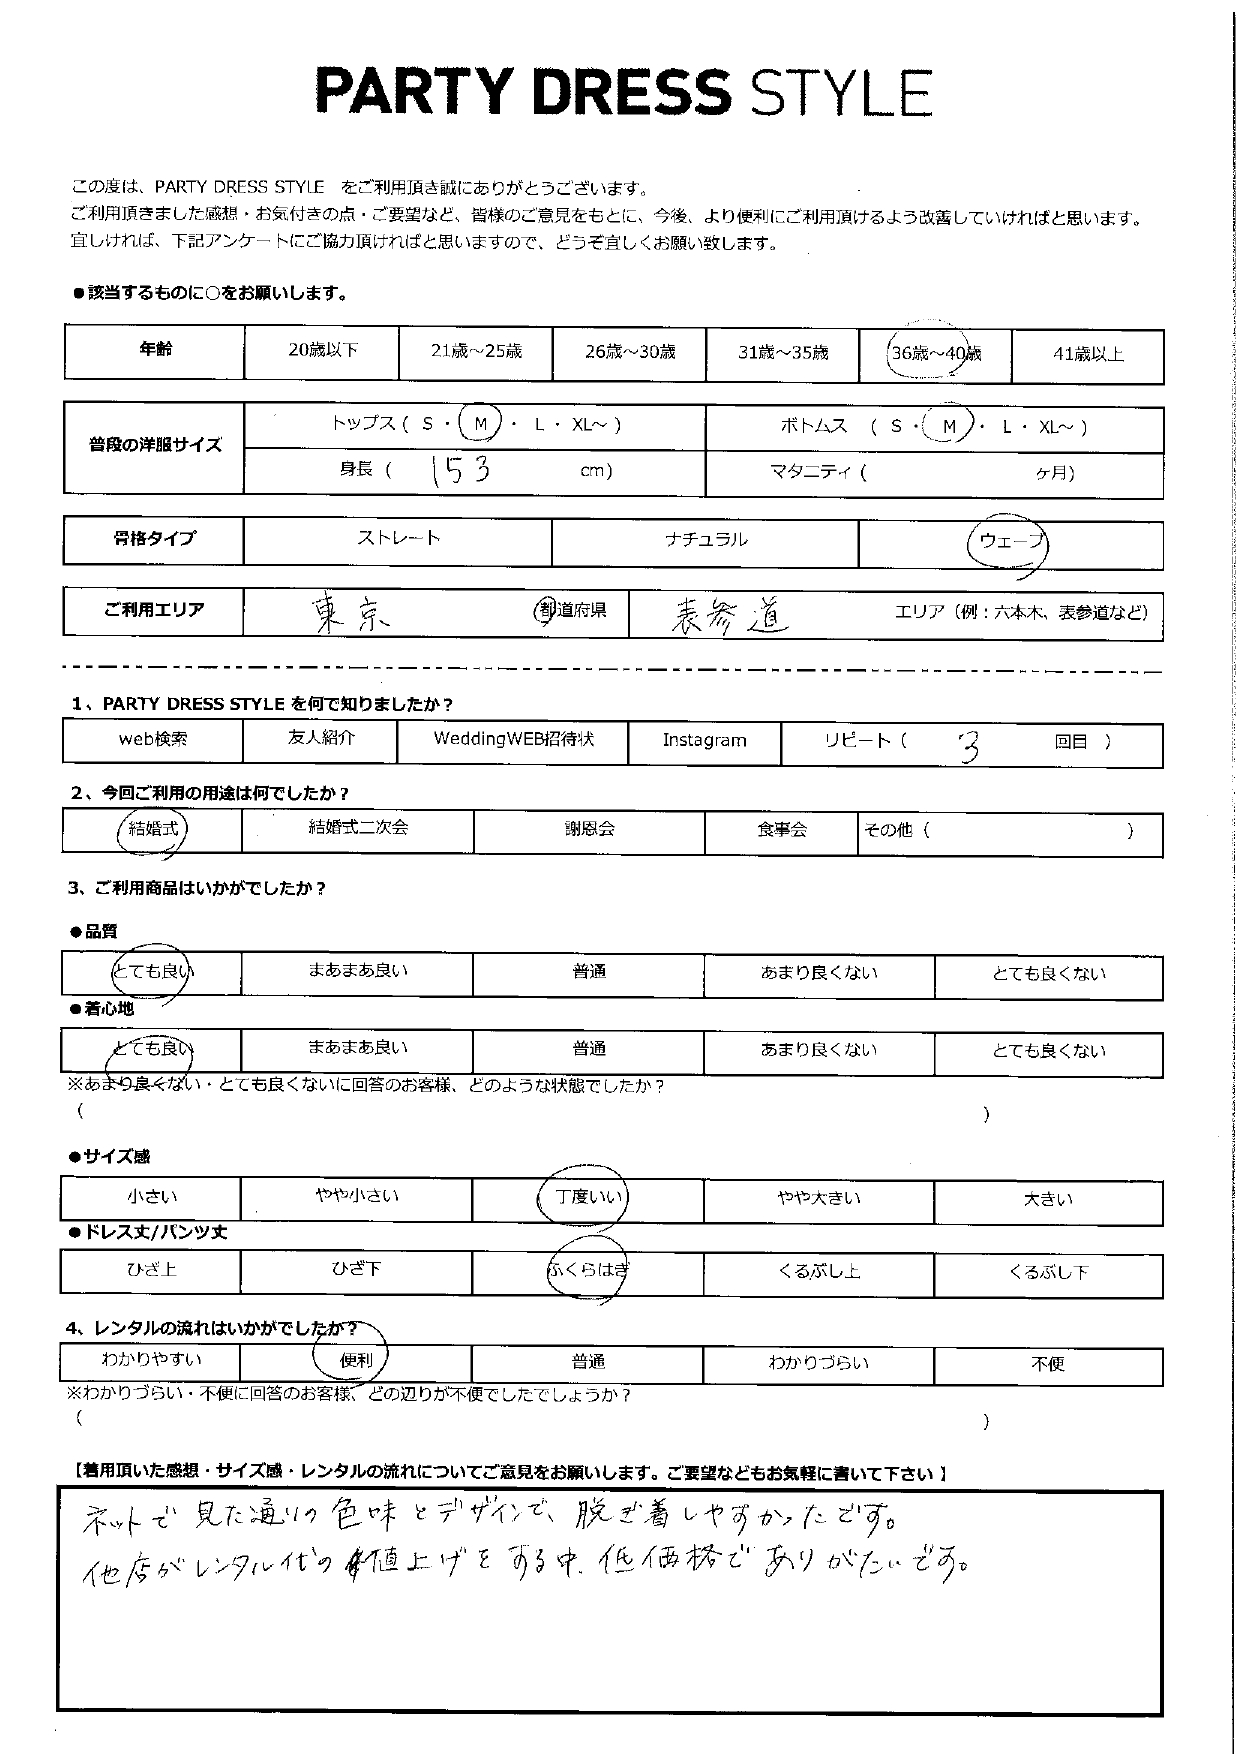 PARTY DRESS STYLE
この度は、PARTY DRESS STYLE をご利用頂き誠にありがとうございます。
ご利用頂きました感想・お気付きの点・ご要望など、皆様のご意見をもとに、今後、より便利にご利用頂けるよう改善していければと思います。
宜しければ、下記アンケートにご協力頂ければと思いますので、どうぞ宜しくお願い致します。
●該当するものに○をお願いします。
年齢 20歳以下 21歳～25歳 26歳～30歳 31歳～35歳 36歳～40歳 41歳以上
普段の洋服サイズ トップス ( S ・ M ・ L ・ XL～ ) ボトムス ( S ・ M ・ L ・ XL～ )
身長 ( 153 cm) マタニティ ( ヶ月)
骨格タイプ ストレート ナチュラル ウェーブ
ご利用エリア 東京 都道府県 表参道 エリア（例：六本木、表参道など）
1、PARTY DRESS STYLE を何で知りましたか？
web検索 友人紹介 WeddingWEB招待状 Instagram リピート ( 3 回目 )
2、今回ご利用の用途は何でしたか？
結婚式 結婚式二次会 謝恩会 食事会 その他 ( )
3、ご利用商品はいかがでしたか？
●品質
とても良い まあまあ良い 普通 あまり良くない とても良くない
●着心地
とても良い まあまあ良い 普通 あまり良くない とても良くない
※あまり良くない・とても良くないに回答のお客様、どのような状態でしたか？
( )
●サイズ感
小さい やや小さい 丁度いい やや大きい 大きい
●ドレス丈/パンツ丈
ひざ上 ひざ下 ふくらはぎ くるぶし上 くるぶし下
4、レンタルの流れはいかがでしたか？
わかりやすい 便利 普通 わかりづらい 不便
※わかりづらい・不便に回答のお客様、どの辺りが不便でしたでしょうか？
( )
【着用頂いた感想・サイズ感・レンタルの流れについてご意見をお願いします。ご要望などもお気軽に書いて下さい】
ネットで見た通りの色味とデザインで、脱ぎ着しやすかったです。
他店がレンタル代の値上げをする中、低価格でありがたいです。